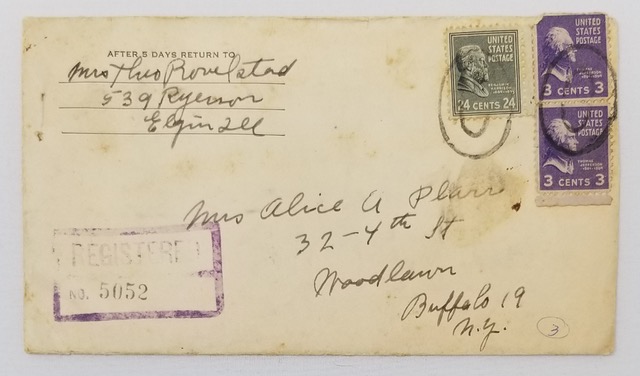 AFTER 5 DAYS RETURN TO
Mrs Theo Rovelstad
539 Ryerson
Elgin Ill
UNITED
STATES
POSTAGE
24 CENTS 24
UNITED
STATES
POSTAGE
THOMAS
JEFFERSON
3 CENTS 3
UNITED
STATES
POSTAGE
THOMAS
JEFFERSON
3 CENTS 3
Mrs Alice A Plarr
32-4th St
Woodlawn
Buffalo 19
N.Y.
REGISTERED
NO. 5052
3